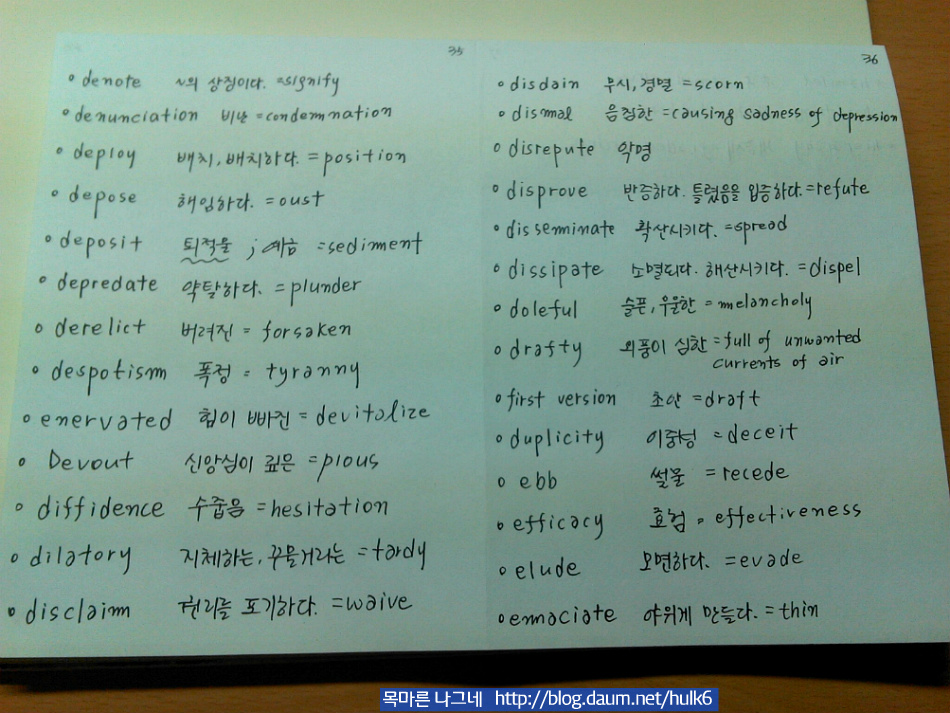 35
° denote ~의 상징이다. =signify
° denunciation 비난 =condemnation
° deploy 배치, 배치하다. =position
° depose 해임하다. =oust
° deposit 퇴적물 ; 예금 =sediment
° depredate 약탈하다. =plunder
° derelict 버려진 = forsaken
° despotism 폭정 = tyranny
° enervated 힘이 빠진 = devitalize
° Devout 신앙심이 깊은 =pious
° diffidence 수줍음 =hesitation
° dilatory 지체하는, 꾸물거리는 =tardy
° disclaim 권리를 포기하다. =waive
36
° disdain 무시, 경멸 =scorn
° dismal 음침한 =causing sadness of depression
° disrepute 악명
° disprove 반증하다. 틀렸음을 입증하다.=refute
° disseminate 확산시키다. =spread
° dissipate 소멸되다. 해산시키다. =dispel
° doleful 슬픈, 우울한 = melancholy
° drafty 외풍이 심한 =full of unwanted
currents of air
° first version 초안 =draft
° duplicity 이중성 =deceit
° ebb 썰물 =recede
° efficacy 효험 = effectiveness
° elude 모면하다. =evade
° emaciate 야위게 만들다. =thin
목마른 나그네 http://blog.daum.net/hulk6